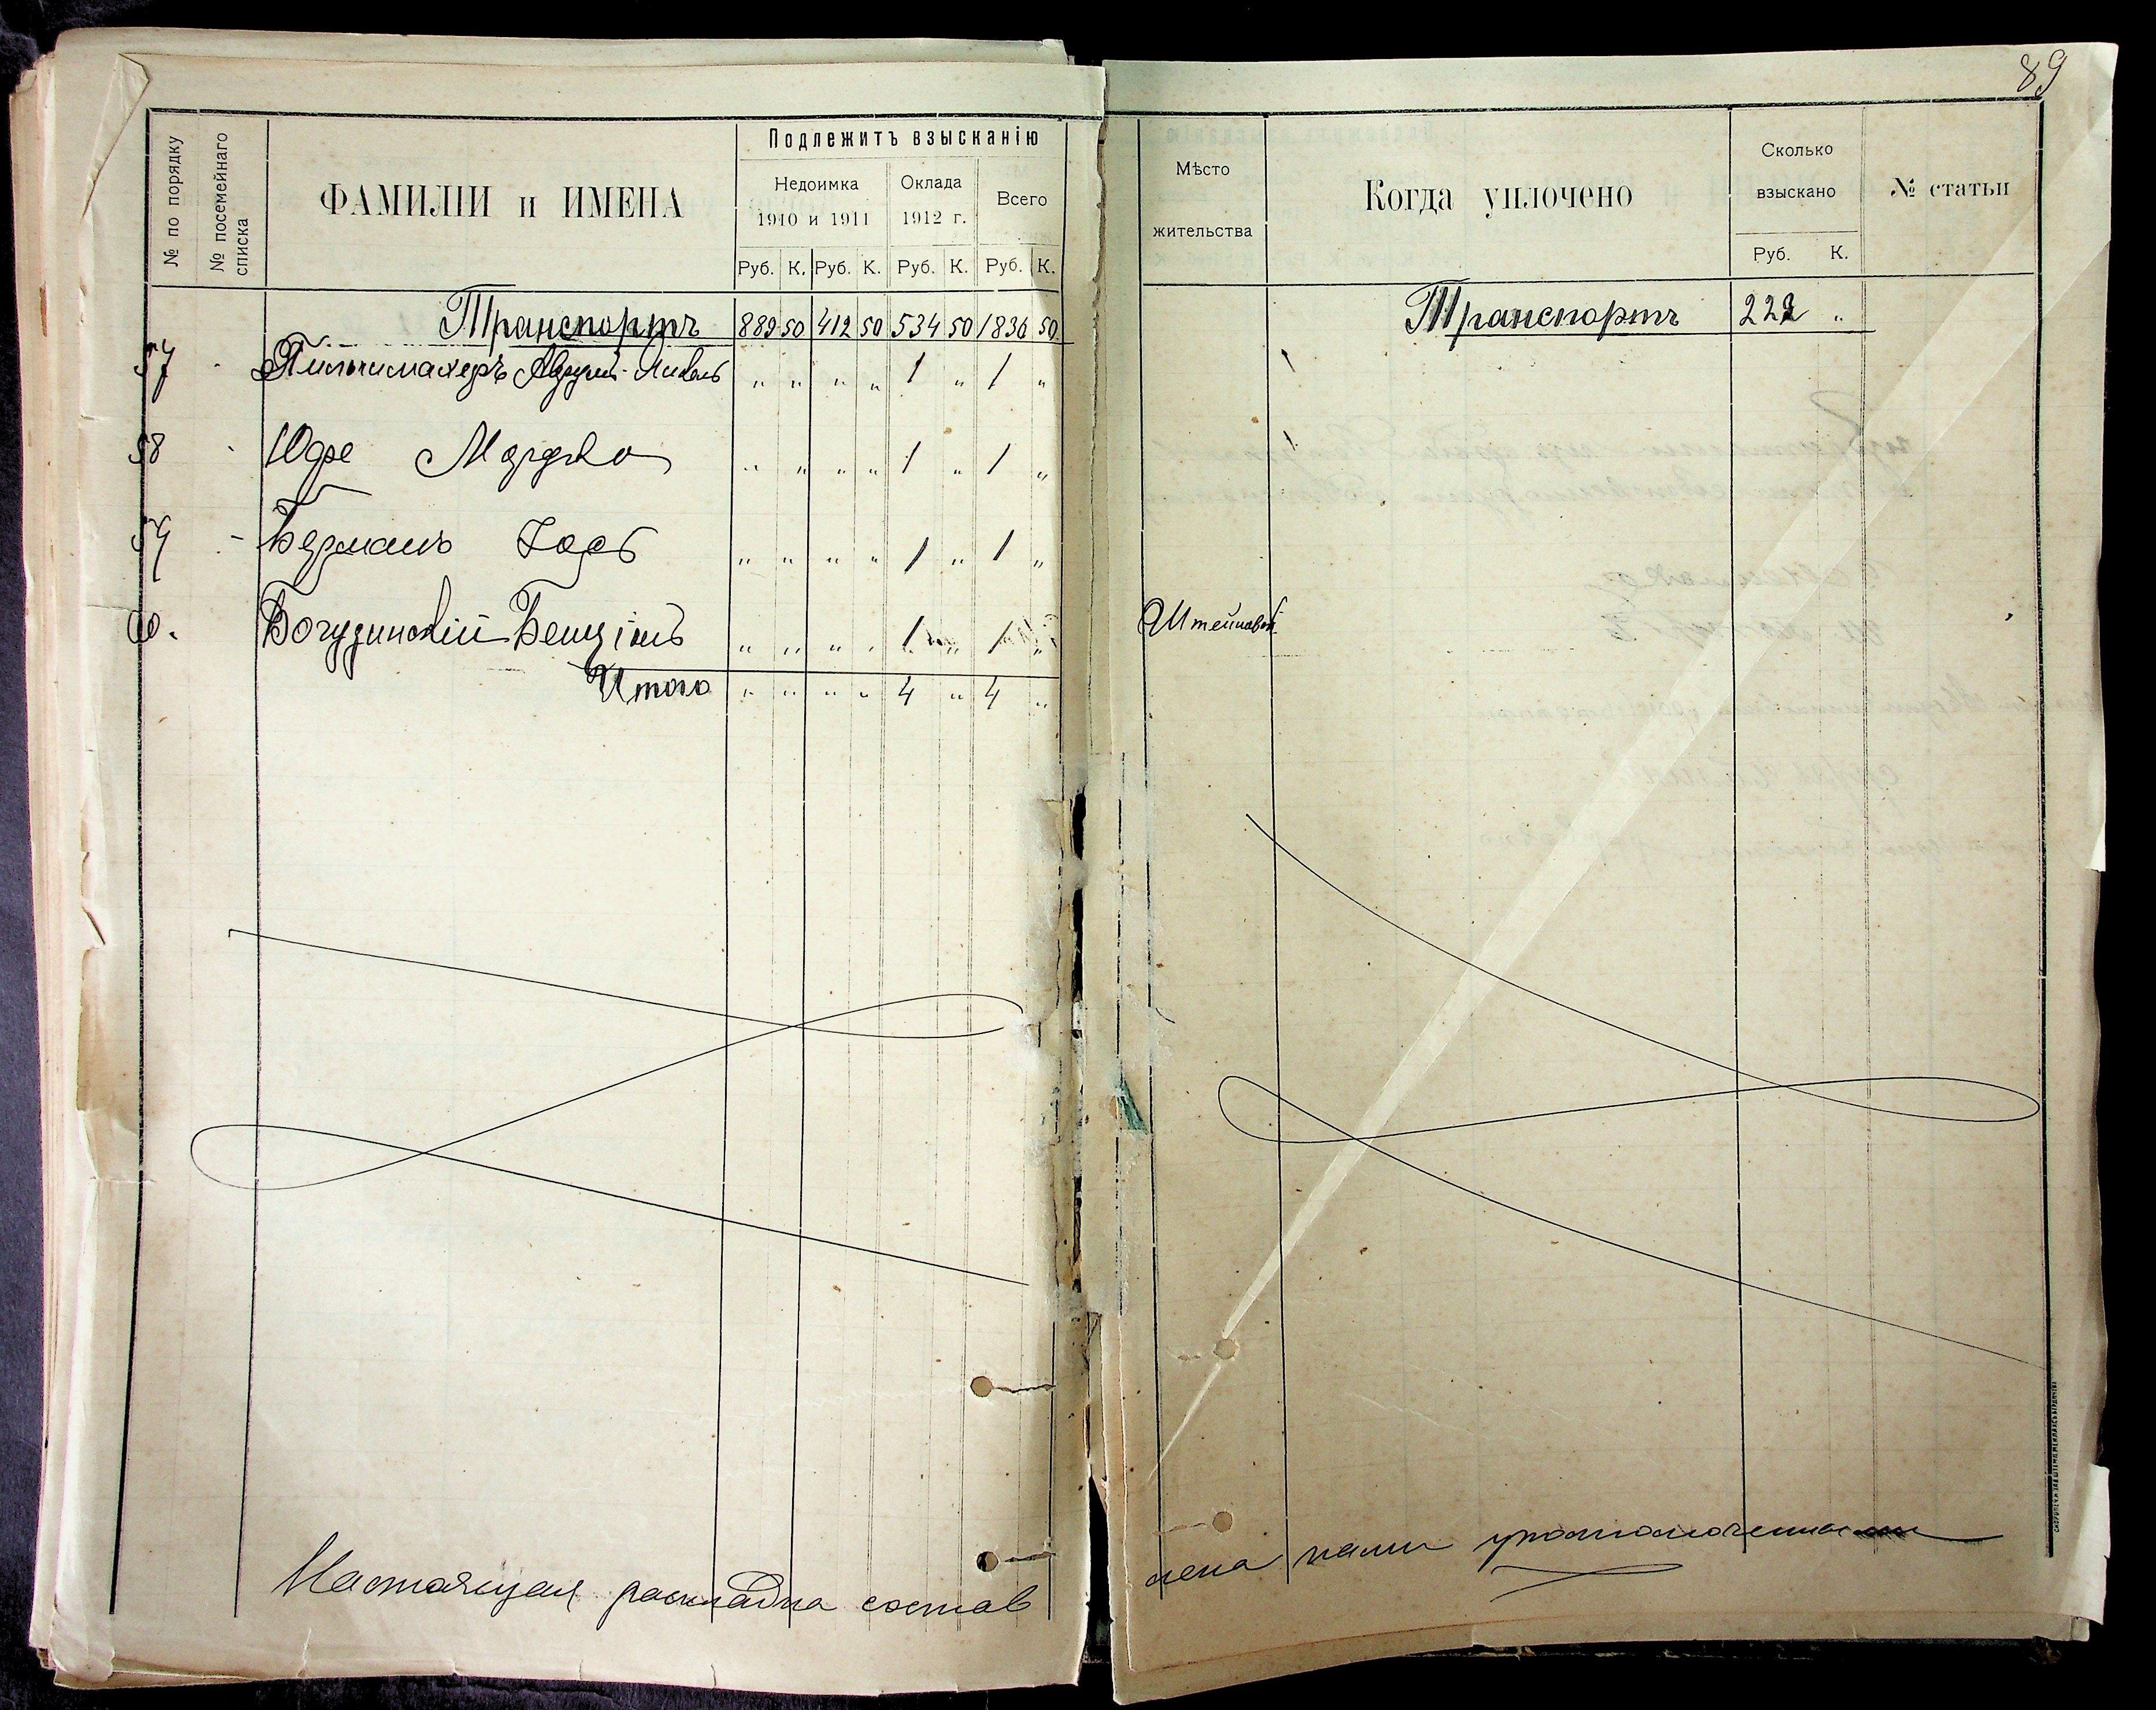 89
№ по порядку
№ посемейнаго списка
ФАМИЛІИ и ИМЕНА
Подлежитъ взысканію
Недоимка
1910 и 1911
Оклада
1912 г.
Всего
Руб. К. Руб. К. Руб. К. Руб. К.
Мѣсто
жительства
Когда уплочено
Сколько
взыскано
Руб. К.
№ статьи
Транспортъ 889 50 412 50 534 50 1836 50
Транспортъ 222 „
57 „ „ „ „ 1 „ 1 „
58 Юфе Мордко „ „ „ „ 1 „ 1 „
59 Берманъ „ „ „ „ 1 „ 1 „
60. Богудинскій Бенціонъ „ „ „ „ 1 „ 1 „
Итого „ „ „ „ 4 „ 4 „
Настоящая раскладка состав
лена нами уполномоченными